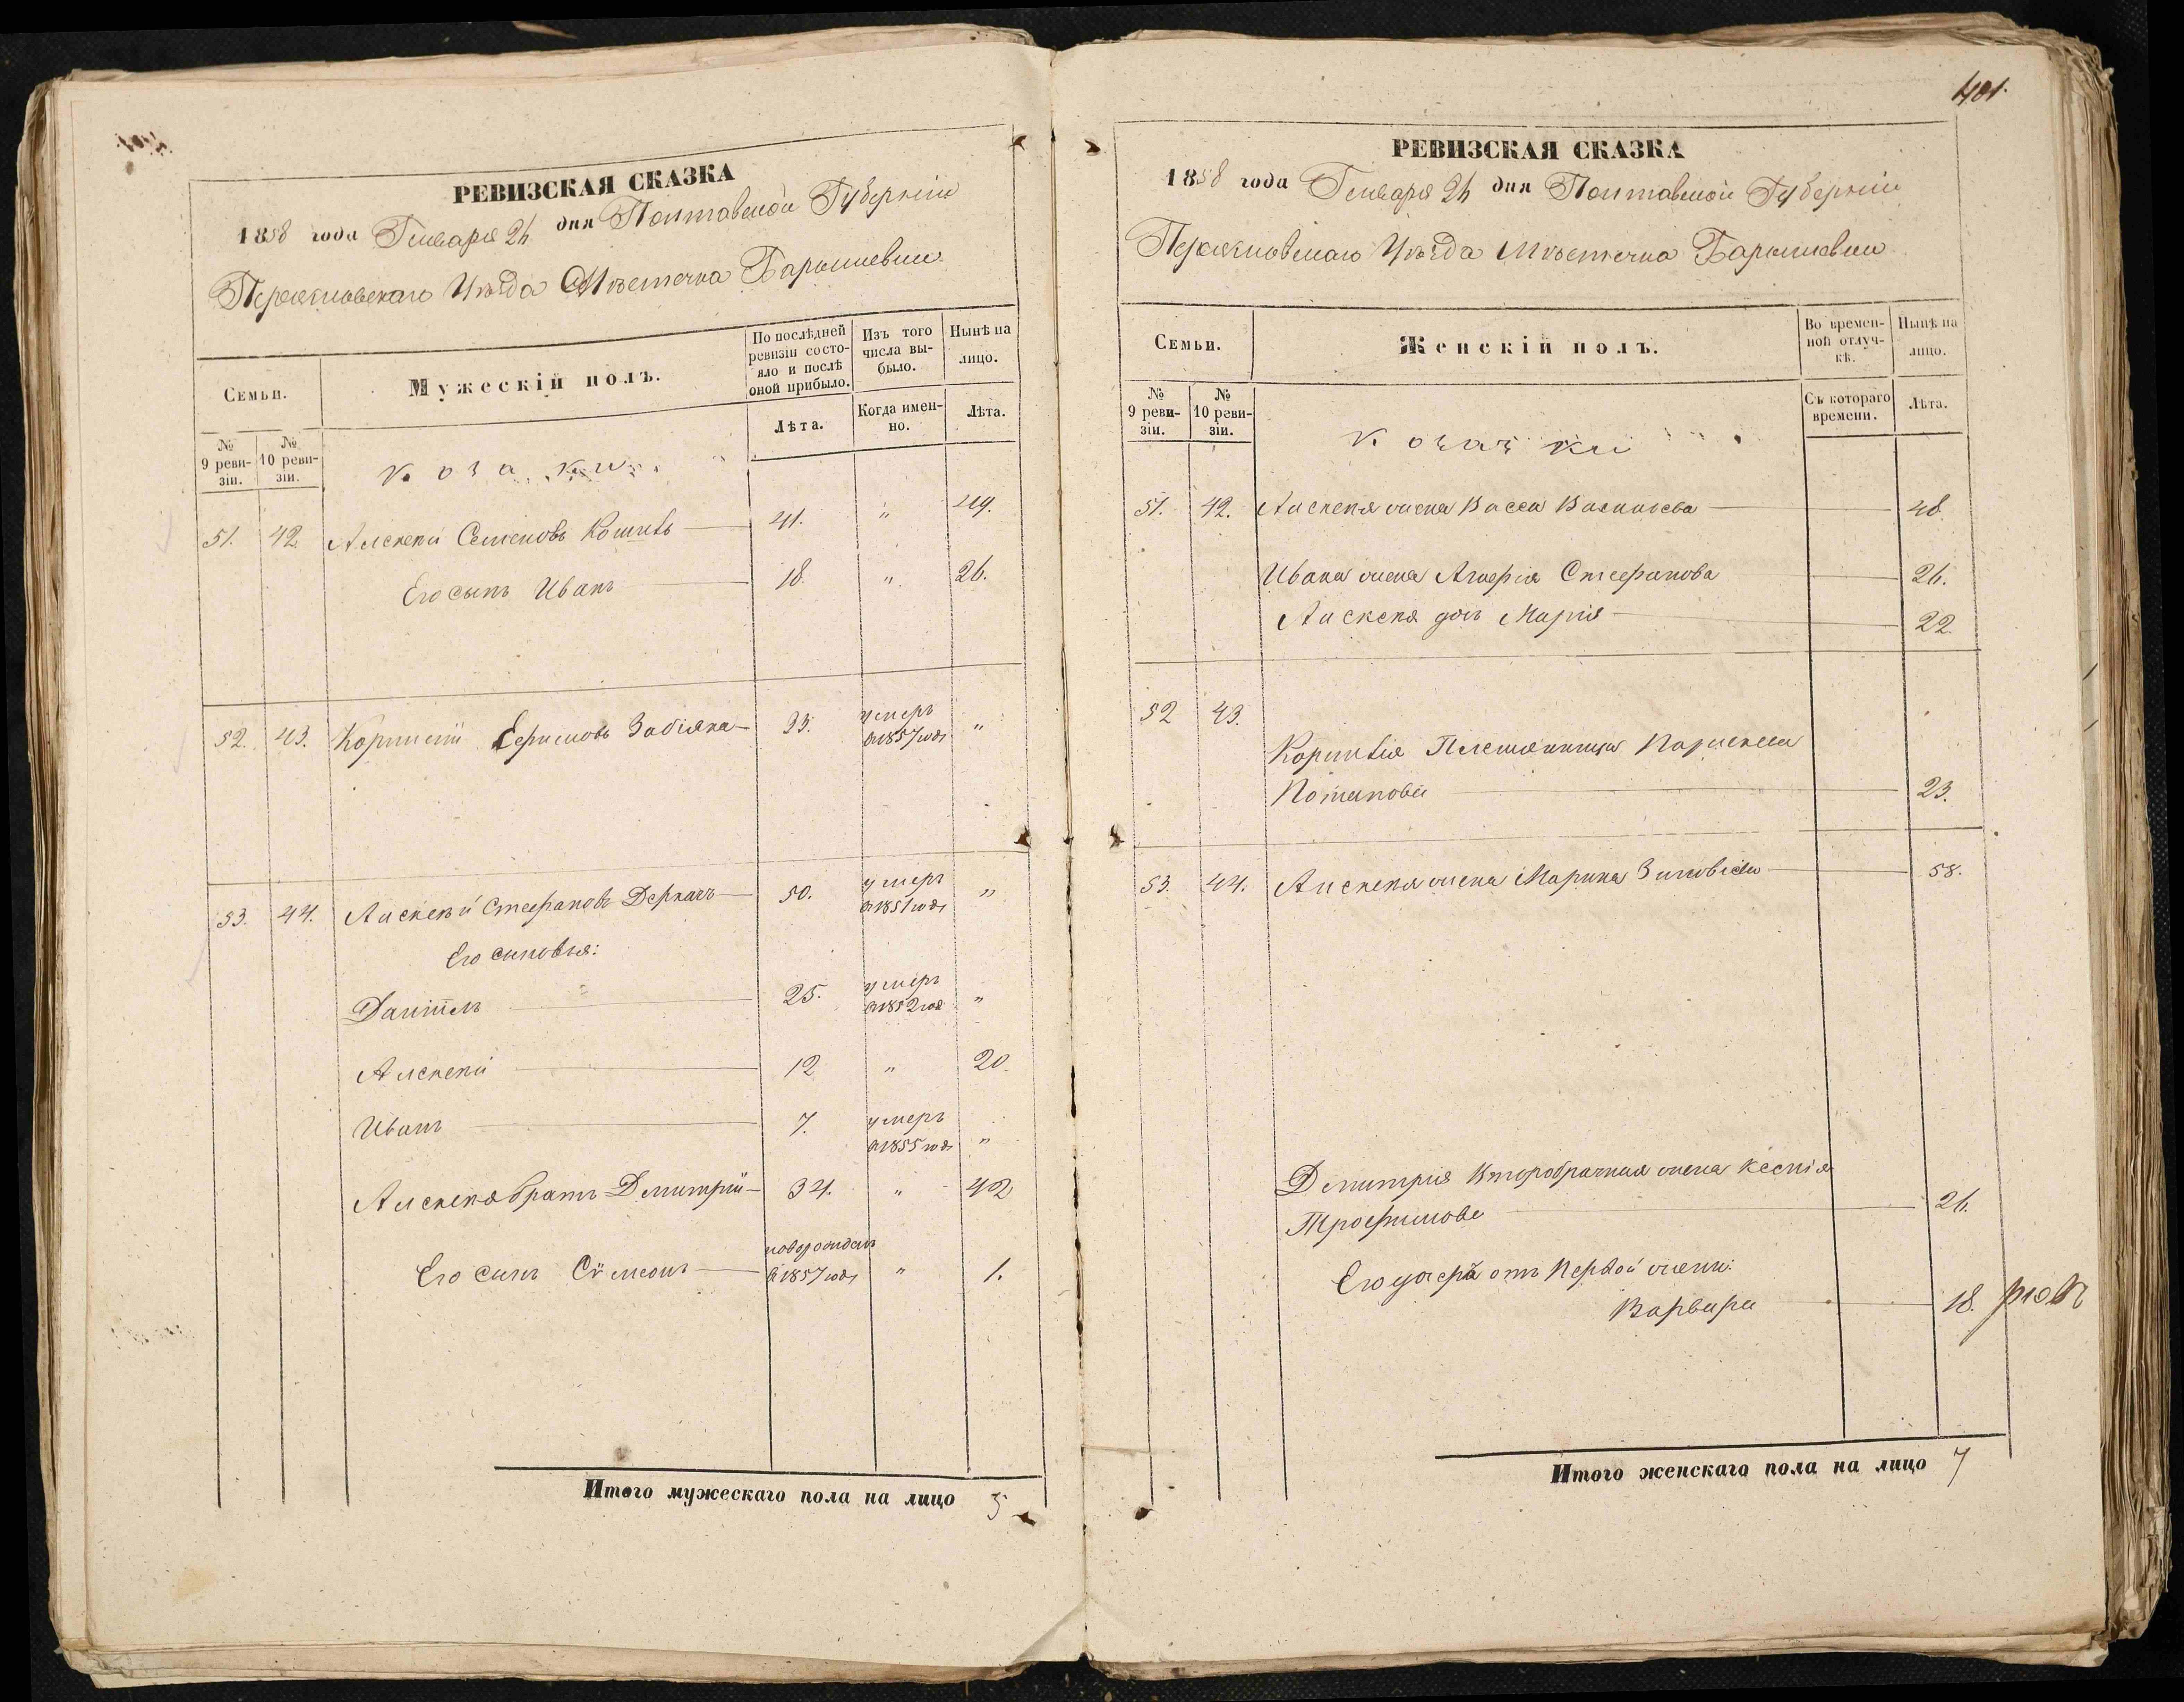 РЕВИЗСКАЯ СКАЗКА
1858 года Генваря 26 дня Полтавской Губерніи
Переяславскаго Уѣзда Мѣстечка Барышевки
Семьи.
Мужескій полъ.
По послѣдней ревизіи состояло и послѣ оной прибыло.
Изъ того числа выбыло.
Нынѣ на лицо.
№ 9 ревизіи.
№ 10 ревизіи.
Лѣта.
Когда именно.
Лѣта.
козаки
51. 42. Алексѣй Семеновъ 41. " 49.
Его сынъ Иванъ 18. " 26.
52. 43. Корнилій Ефимовъ Забіяка 35. умеръ "
в 1857 годѣ
53. 44. Алексѣй Стефановъ Деркачъ 50. умеръ "
в 1851 годѣ
Его сыновья:
Даніилъ 25. умеръ
в 1852 год "
Алексѣй 12 " 20.
Иванъ 7. умеръ
в 1855 годѣ "
Алексѣя братъ Димитрій 34. " 42
новорожден
Его сынъ Сѵмеонъ в 1857 годѣ " 1.
Итого мужескаго пола на лицо 5
401.
РЕВИЗСКАЯ СКАЗКА
1858 года Генваря 26 дня Полтавской Губерніи
Переяславскаго Уѣзда Мѣстечка Барышевки
Семьи.
Женскій полъ.
Во временной отлучкѣ.
Нынѣ на лицо.
№ 9 ревизіи.
№ 10 ревизіи.
Съ котораго времени.
Лѣта.
козачки
51. 42. Алексѣя жена Васса Василіева 48.
Ивана жена Стефанова 26.
Алексѣя дочь Марія 22.
52 43.
Корнилія Племянница Параскева
Потапова 23.
53. 44. Алексѣя жена Марина Зиновіева 58.
Димитрія Второбрачная жена Ксенія
Трофимова 26.
Его дочерь отъ Первой жены:
Варвара 18.
Итого женскаго пола на лицо 7